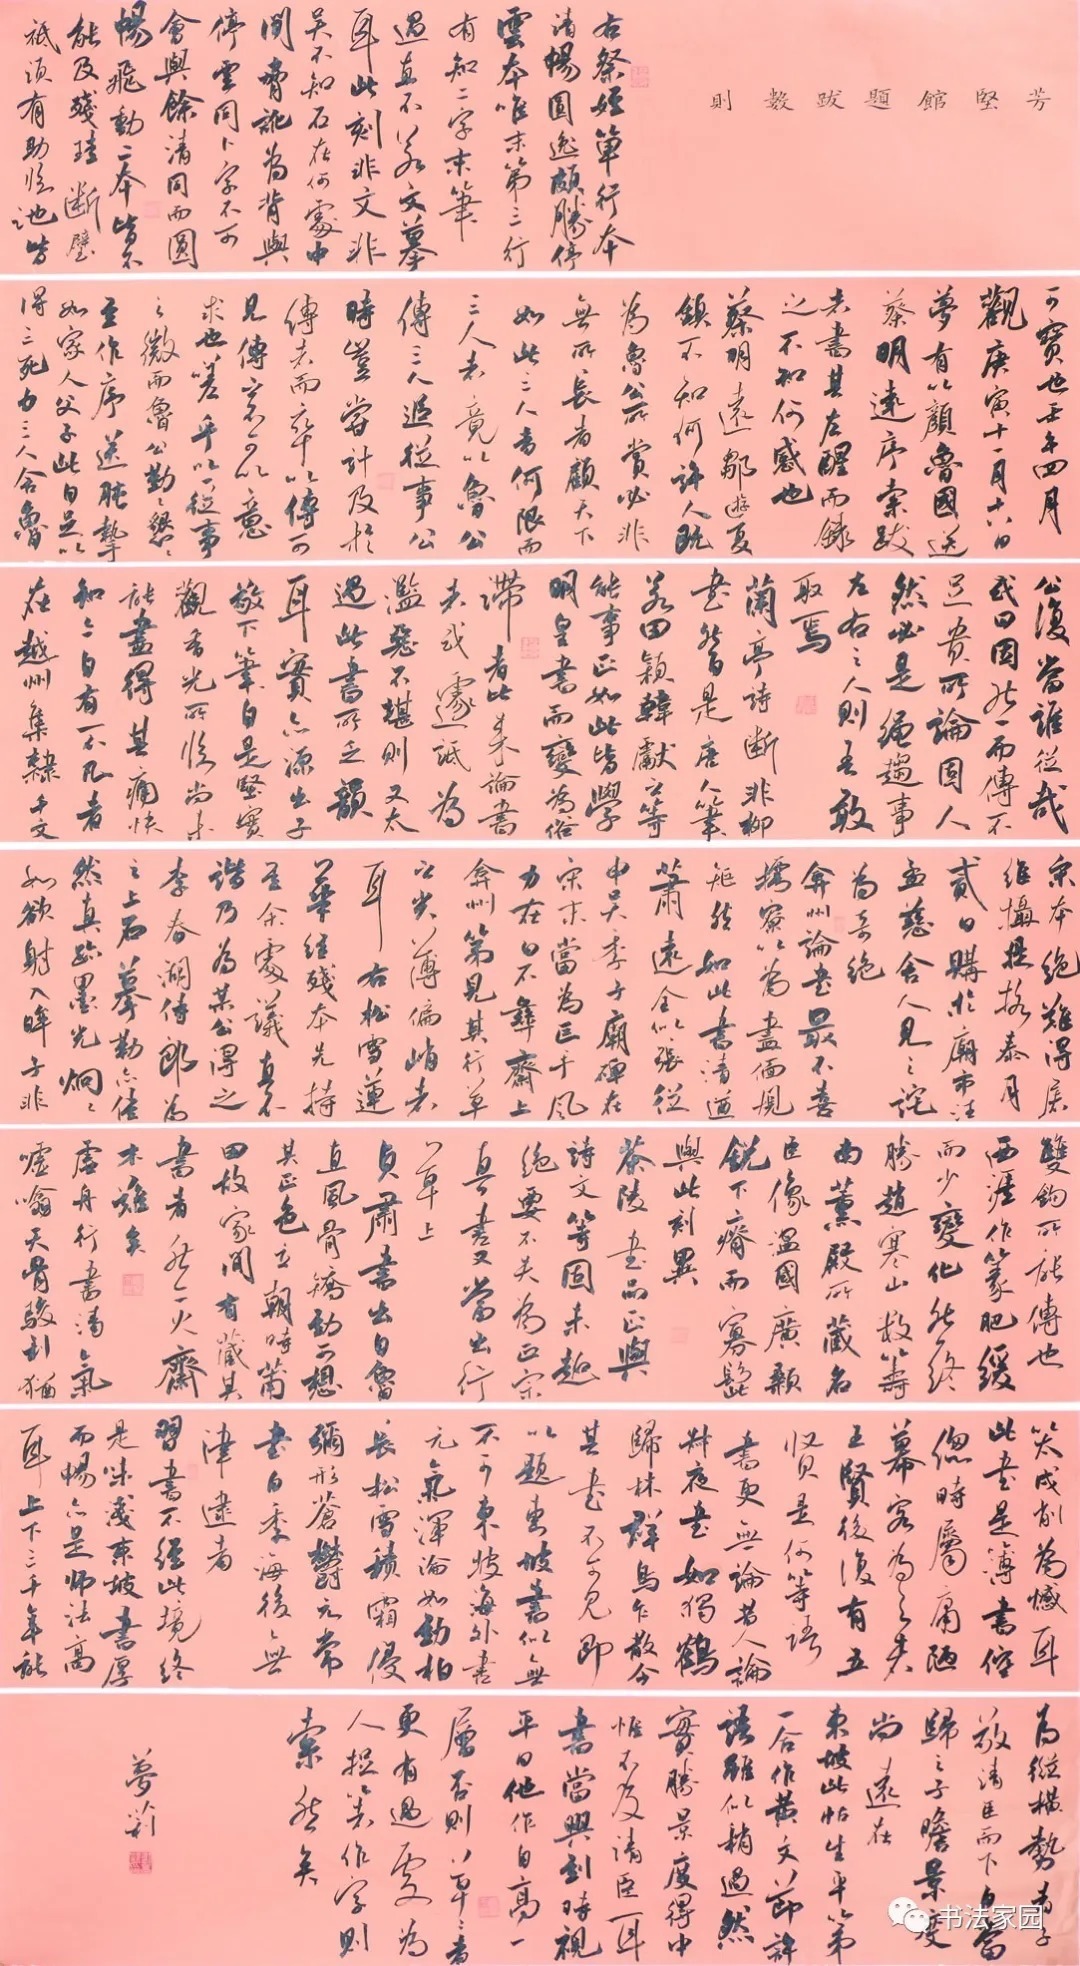 芳堅館題跋數則
右祭姪單行本
清暢圓逸頗勝停
雲本唯末第三行
有知二字末筆
過直不若文摹
耳此刻非文非
吳不知石在何處中
間脅訛為背與
停雲同卜字不可
會與餘清同而圓
暢飛動二本皆不
能及殘珪斷璧
祇須有助臨池皆
可寶也壬午四月
觀庚寅十一月十六日
夢有以顏魯國送
蔡明遠序索跋
者書其左醒而錄
之不知何感也
蔡明遠鄒遊夏
鎮不知何許人既
為魯公所賞必非
無所長者顧天下
如此三人者何限而
三人者竟以魯公
傳三人追從事公
時豈嘗計及於
傳者而卒以傳可
見傳不可以意
求也嗟乎以一從事
之微而魯公勤勤懇懇
至作序送肫摯
如家人父子此自足以
得三死力三人舍魯
公復當誰從哉
或曰固然一而傳不
足貴所論固人
然必是繩趨事
左右之人則吾敢
取焉
蘭亭詩斷非柳
書然自是唐人筆
若田穎韓獻之等
能事正如此皆學
明皇書而變為俗
滯者比來論書
者或遂詆為
濫惡不堪則又太
過此書所乏韻
耳實亦源出子
敬下筆自是堅實
觀香光所臨尚未
能盡得其痛快
知亦自有一不凡者
在越州集隸千文
宋本絕難得展
維攝提格春月
貳日購於廟市汪
孟慈舍人見之詫
為奇絕
弇州論書最不喜
擩寮以為盡偭規
矩然如此書清遒
蕭遠全似張從
申吳季子廟碑在
宋末當為巨手風
力在曰不彝齋上
弇州第見其行草
之尖薄偏峭者
耳右松雪蓮
華經殘本先持
至余處議直不
諧乃為某公得之
李春湖侍郎為
之上石摹勒亦佳
然真跡墨光炯炯
如欲射入眸子非
雙鉤所能傳也
西涯作篆肥緩
而少變化然終
勝趙寒山數籌
南薰殿所藏名
臣像溫國廣顙
銳下瘠而寡髭
與此刻異
茶陵書品正與
詩文等固未超
絕要不失為正宗
真書又當出行
草上
貞肅書出自魯
直風骨矯動可想
其正色立朝時莆
田故家間有藏其
書者然一火齋
木難矣
虛舟行書清氣
噓噏天骨駿利猶
笑成削為憾耳
此書是簿書倥
傯時屬庸陋
幕客為之者
五賢後復有五
賢是何等語
書更無論昔人論
叔夜書如獨鶴
歸林群烏乍散今
其書不可見即
以題東坡書似無
不可東坡海外書
元氣渾淪如勁柏
長松雪積霜侵
彌形蒼鬱元常
書自季海後無
津逮者
習書不經此境終
是味淺東坡書厚
而暢亦是師法高
耳上下三千年能
為縱橫勢者子
敬清臣而下自當
歸之子瞻景度
尚遠在
東坡此帖生平第
一合作黃文節許
語雖似稍過然
實勝景度得中
惟不及清臣耳
書當興到時視
平日他作自高一
層否則草草者
更有過處為
人捉筆作字則
索然矣
夢莉
书法家园